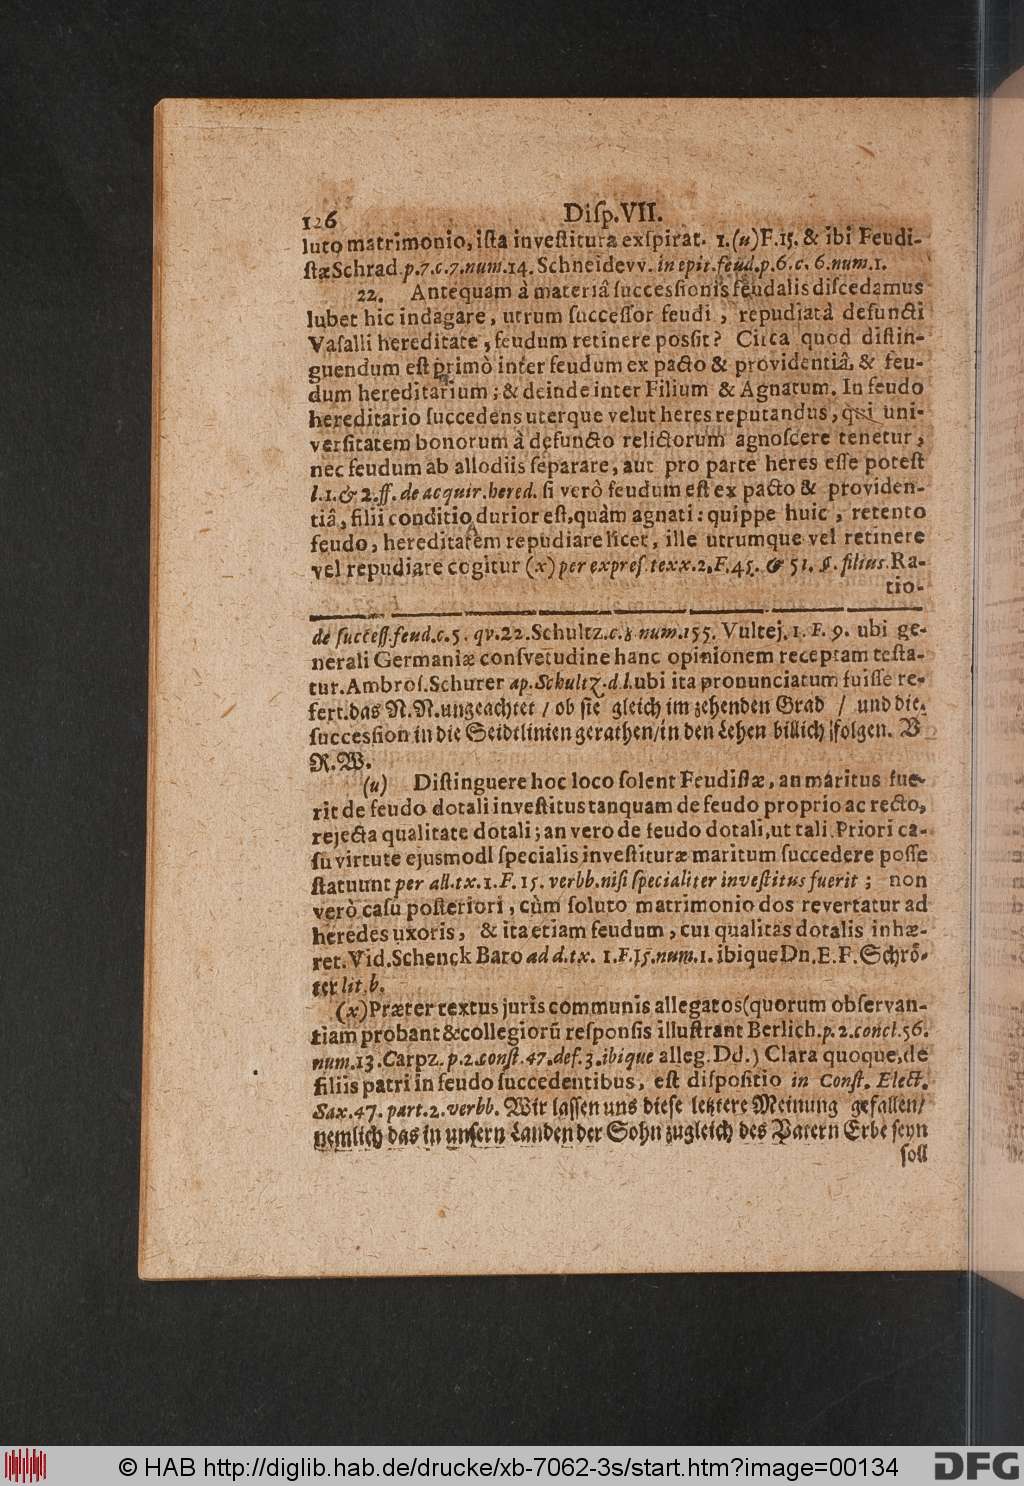 126 Diſp.VII.
luto matrimonio, iſta inveſtitura exſpirat. 1.(u)F.15. & ibi Feudi-
ſtæ Schrad.p.7.c.7.num.14. Schneidevv. in epit.feud.p.6.c.6.num.1.
22. Antequam à materiâ ſucceſſionis feudalis diſcedamus
lubet hic indagare, utrum ſucceſſor feudi, repudiatâ defuncti
Vaſalli hereditate, feudum retinere poſſit? Circa quod diſtin-
guendum eſt primò inter feudum ex pacto & providentiâ, & feu-
dum hereditarium; & deinde inter Filium & Agnatum. In feudo
hereditario ſuccedens uterque velut heres reputandus, qui uni-
verſitatem bonorum à defuncto relictorum agnoſcere tenetur,
nec feudum ab allodiis ſeparare, aut pro parte heres eſſe poteſt
l.1.& 2.ff. de acquir.hered. ſi verò feudum eſt ex pacto & providen-
tiâ, filii conditio durior eſt, quàm agnati: quippe huic, retento
feudo, hereditatem repudiare licet, ille utrumque vel retinere
vel repudiare cogitur (x) per expreſ.texx.2.F.45. & 51. §. filius. Ra-
tio-
de ſucceſſ.feud.c.5. qv.22. Schultz.c.8 num.155. Vultej. 1. F. 9. ubi ge-
nerali Germaniæ conſvetudine hanc opinionem receptam teſta-
tur. Ambroſ. Schurer ap. Schultz. d.l. ubi ita pronunciatum fuiſſe re-
fert. das N.N. ungeachtet / ob ſie gleich im zehenden Grad / und die
ſucceſſion in die Seidtlinien gerathen/ in den Lehen billich folgen. V
R.W.
(u) Diſtinguere hoc loco ſolent Feudiſtæ, an maritus fue-
rit de feudo dotali inveſtitus tanquam de feudo proprio ac recto,
rejecta qualitate dotali; an vero de feudo dotali, ut tali. Priori ca-
ſu virtute ejusmodi ſpecialis inveſtituræ maritum ſuccedere poſſe
ſtatuunt per all.tx.1.F.15. verbb.niſi ſpecialiter inveſtitus fuerit; non
verò caſu poſteriori, cùm ſoluto matrimonio dos revertatur ad
heredes uxoris, & ita etiam feudum, cui qualitas dotalis inhæ-
ret. Vid. Schenck Baro ad d.tx. 1.F.15.num.1. ibique Dn. E.F. Schrö-
ter lit.b.
(x) Præter textus juris communis allegatos (quorum obſervan-
tiam probant & collegiorũ reſponſis illuſtrant Berlich.p.2.concl.56.
num.13. Carpz. p.2.conſt.47.def.3.ibique alleg. Dd.) Clara quoque, de
filiis patri in feudo ſuccedentibus, eſt diſpoſitio in Conſt. Elect.
Sax.47. part.2. verbb. Wir laſſen uns dieſe letztere Meinung gefallen/
nemlich das in unſern Landen der Sohn zugleich des Vatern Erbe ſeyn
ſoll
© HAB http://diglib.hab.de/drucke/xb-7062-3s/start.htm?image=00134
DFG